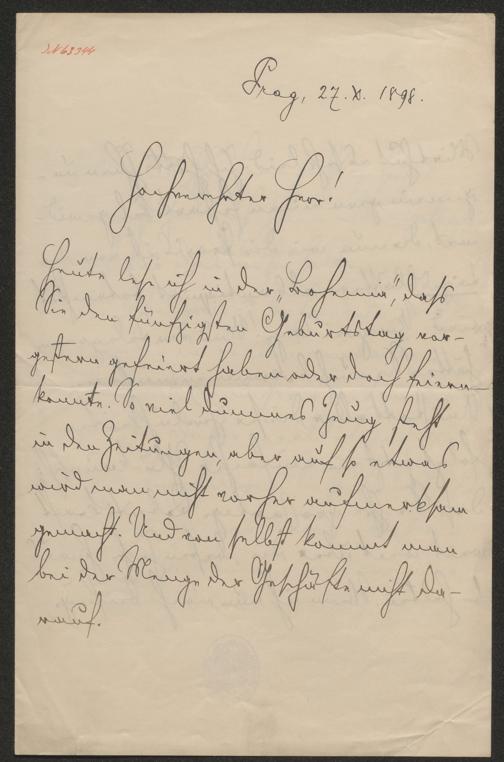 J.N 63344
Prag, 27. X. 1898.
Hochverehrter Herr!
Heute lese ich in der „Bohemia“, dass
Sie den fünfzigsten Geburtstag vor-
gestern gefeiert haben oder doch feiern
konnten. So viel dummes Zeug steht
in den Zeitungen, aber auf so etwas
wird man nicht vorher aufmerksam
gemacht. Und von selbst kommt man
bei der Menge der Geschäfte nicht da-
rauf.